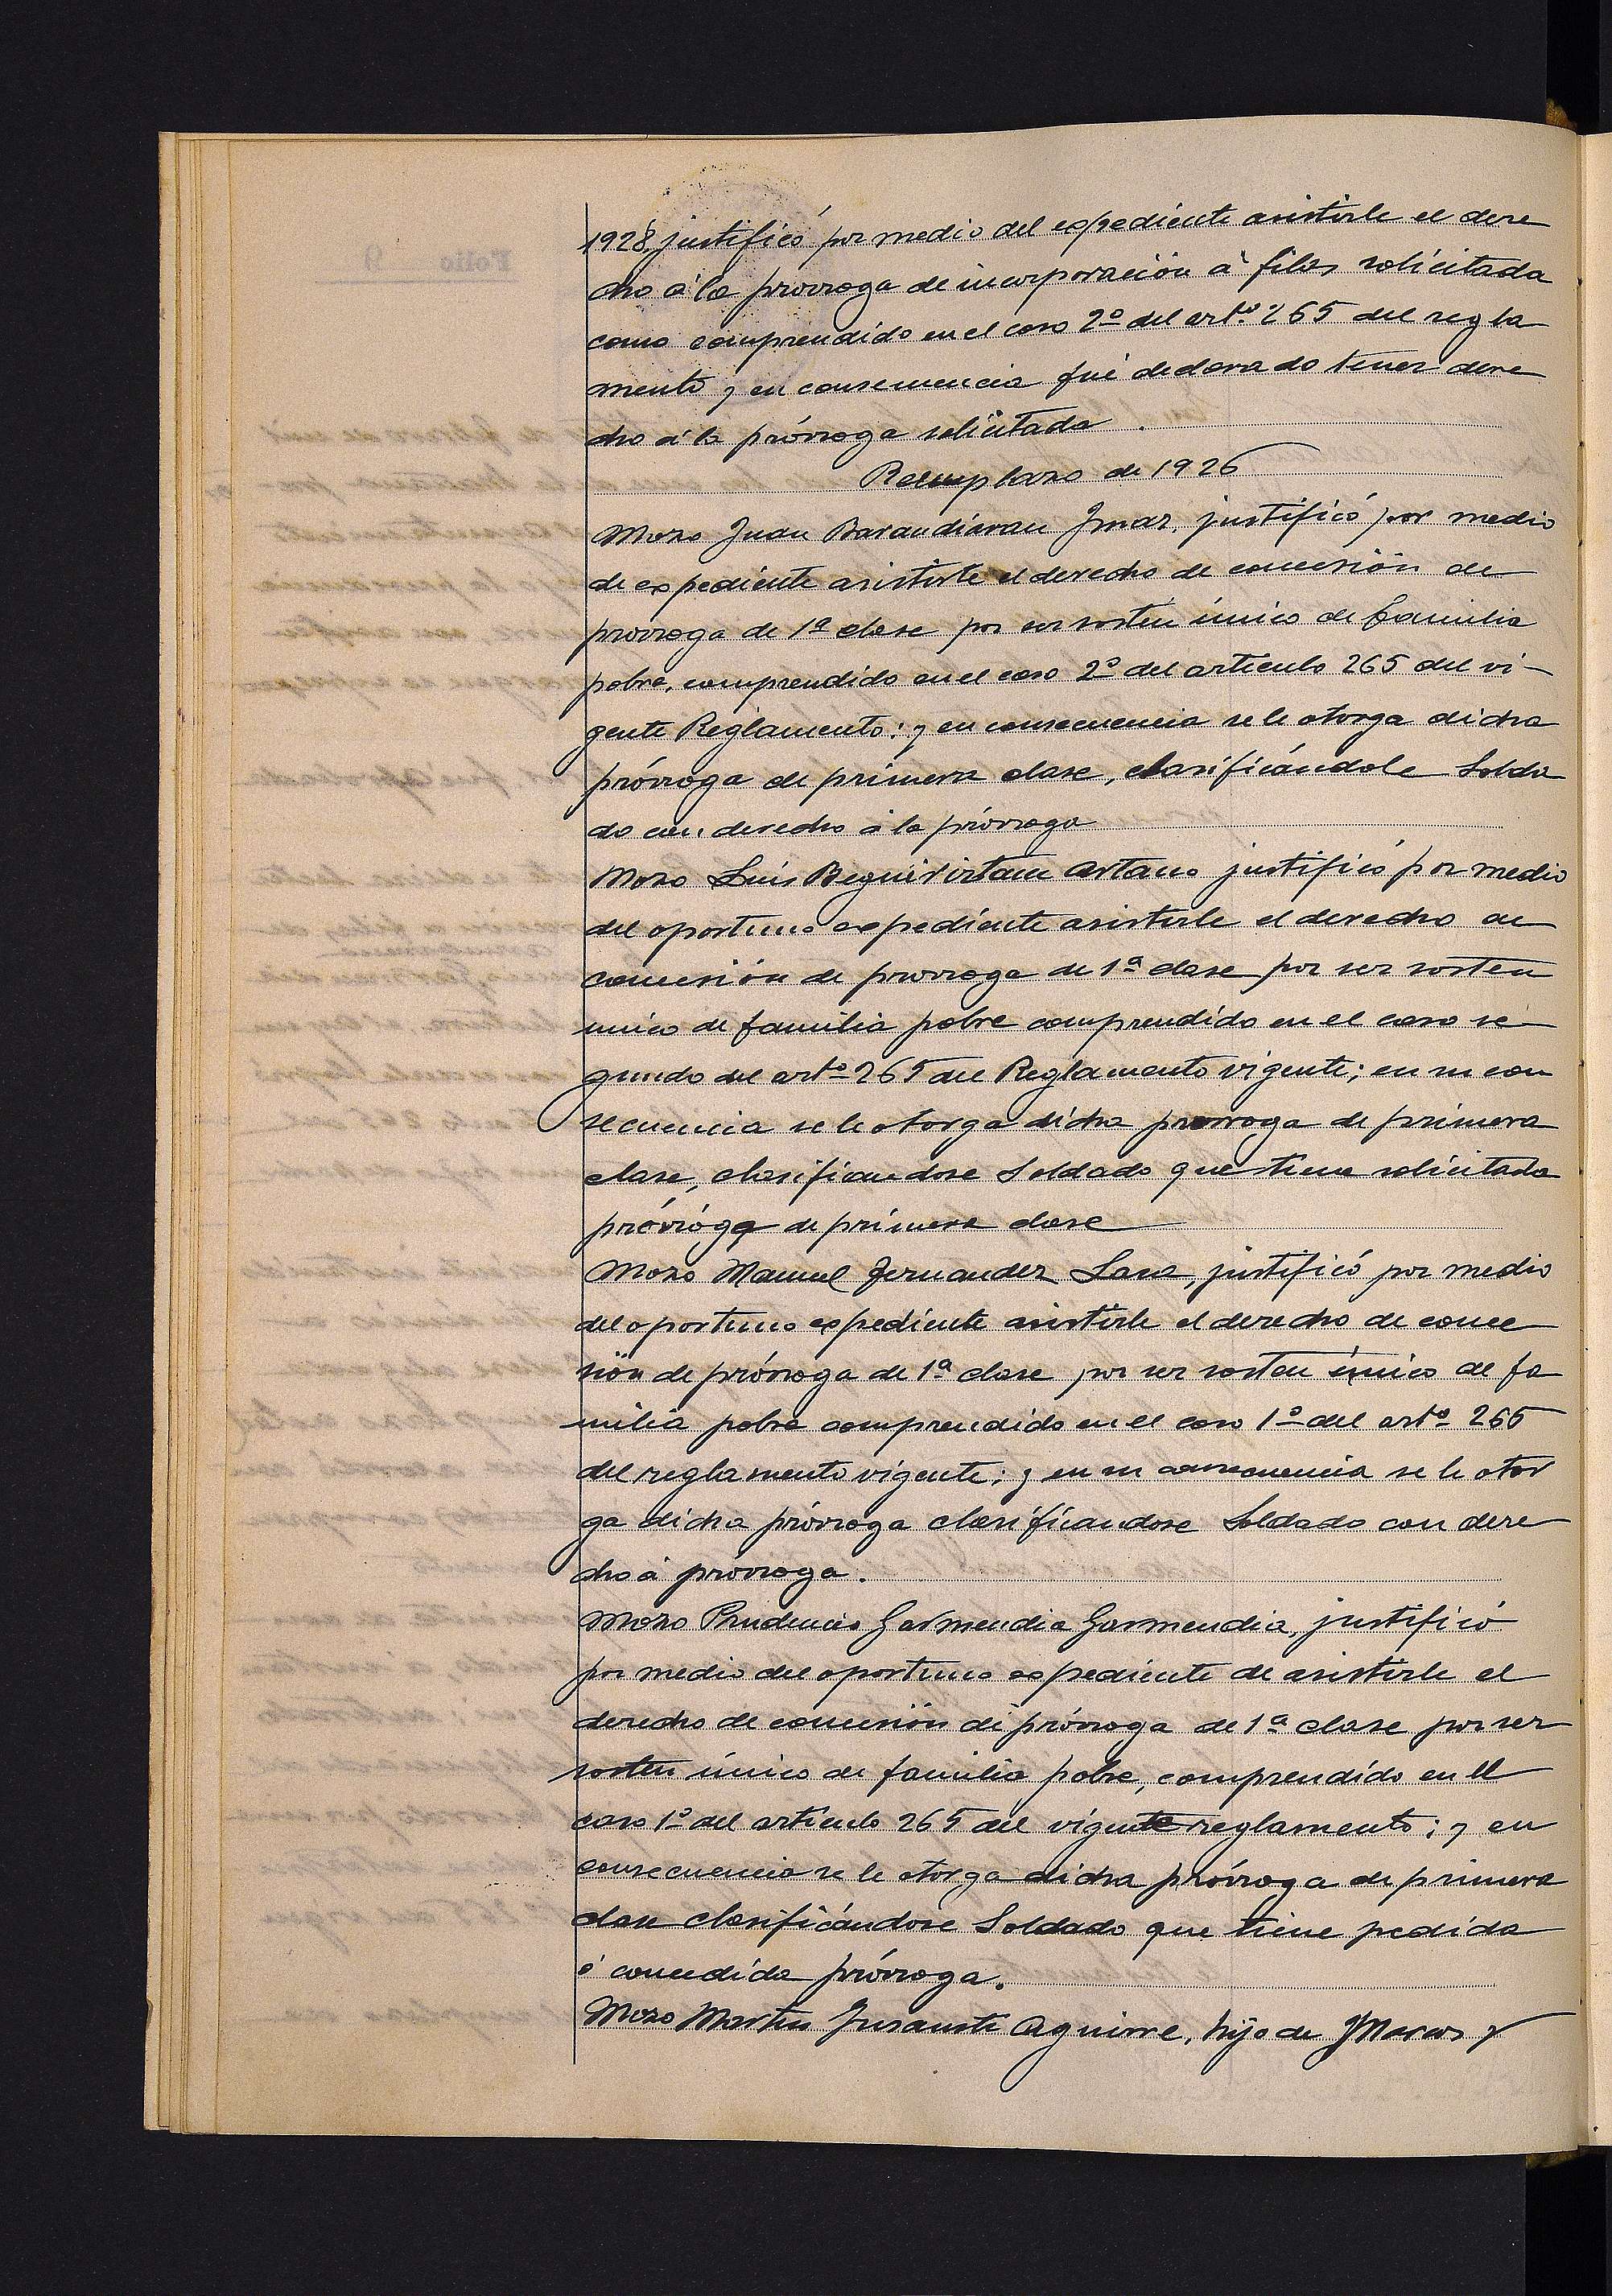 1928, justificó por medio del expediente asistirle el dere
cho á la prorroga de incorporación á filas solicitada
como comprendido en el caso 2º del artº 265 del regla
mento y en consecuencia fué declarado tener dere
cho á la prórroga solicitada.
Reemplazo de 1926
Mozo Juan Barandiaran Imaz, justificó por medio
de expediente asistirle el derecho de concesión de
prorroga de 1ª clase por ser sosten único de familia
pobre, comprendido en el caso 2º del artículo 265 del vi-
gente Reglamento; y en consecuencia se le otorga dicha
prórroga de primera clase, clasificándole Solda
do con derecho á la prórroga
Mozo Luis Beguiristain Artano justificó por medio
del oportuno expediente asistirle el derecho de
concesión de prorroga de 1ª clase por ser sosten
unico de familia pobre comprendido en el caso se
gundo del artº 265 del Reglamento vigente; en su con
secuencia se le otorga dicha prorroga de primera
clase, clasificandose Soldado que tiene solicitada
prórroga de primera clase
Mozo Manuel Fernandez Lasa, justificó por medio
del oportuno expediente asistirle el derecho de conce
sión de prórroga de 1ª clase por ser sosten único de fa
milia pobre comprendido en el caso 1º del artº 265
del reglamento vigente; y en su consecuencia se le otor
ga dicha prórroga clasificandose Soldado con dere
cho á prórroga.
Mozo Prudencio Garmendia Garmendia, justificó
por medio del oportuno expediente de asistirle el
derecho de concesión de prórroga de 1ª clase por ser
sosten único de familia pobre, comprendido en el
caso 1º del artículo 265 del vigente reglamento; y en
consecuencia se le otorga dicha prórroga de primera
clase clasificándose Soldado que tiene pedida
ó concedida prórroga.
Mozo Martin Insausti Aguirre, hijo de Marcos y